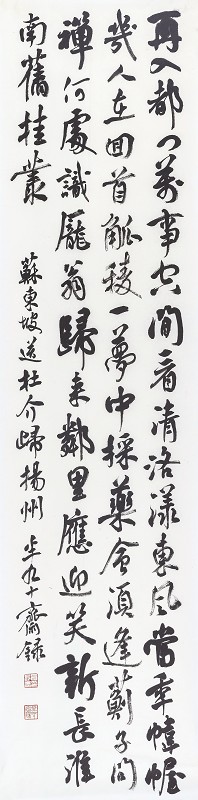 再入都門萬事空閒看清洛漾東風當年幃幄
幾人在回首觚稜一夢中採藥會須逢薊子問
禪何處識龐翁歸来鄰里應迎笑新長淮
南舊桂叢
蘇東坡送杜介歸揚州 半九十齋録